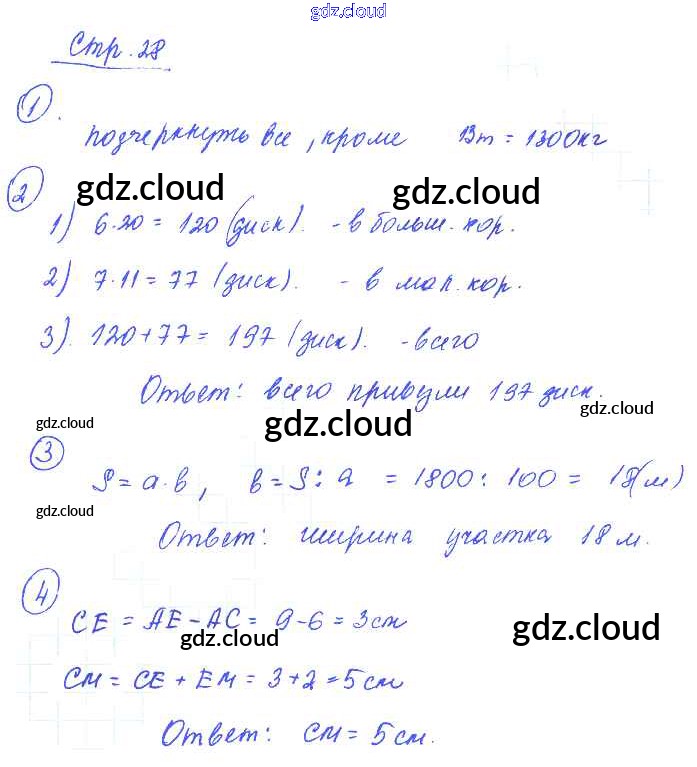 gdz.cloud
Стр. 28
1.
подчеркнуть все, кроме 13т = 1300кг
2
gdz.cloud gdz.cloud
1) 6·20 = 120 (диск). - в больш. кор.
2) 7·11 = 77 (диск). - в мал. кор.
3). 120+77 = 197 (диск). - всего
Ответ: всего привезли 197 диск.
gdz.cloud gdz.cloud gdz.cloud
3
S = a·b, b = S : a = 1800 : 100 = 18(м)
gdz.cloud
Ответ: ширина участка 18 м.
4
CE = AE - AC = 9-6 = 3см
gdz.cloud gdz.cloud
CM = CE + EM = 3+2 = 5 см
Ответ: CM = 5 см.